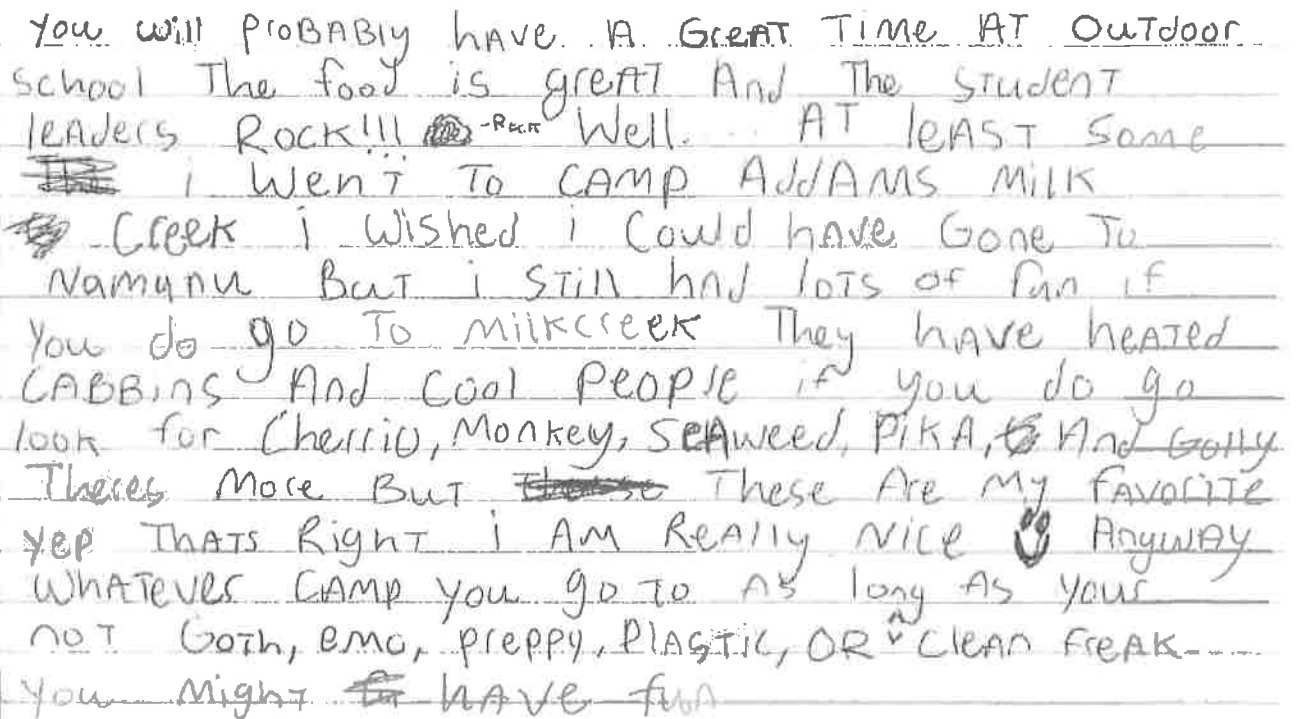 You will PROBABly hAVE A GreAT TIME AT OuTdoor
School The food is greAT And The STudenT
leAders ROCK!!! Well.. AT leAST Some
i WenT To CAMP AddAMS MilK
CreeK i Wished i Could hAve Gone To
Namanu BuT i STill hAd loTS of fun if
You do go To MilkcreeK They hAVE heATed
CABBinS And Cool PeoPle if you do go
look for Cherrio, Monkey, SEAweed, PiKA, And Golly
Theres More BuT These Are My FAVoriTe
yep ThATS RighT i AM ReAlly Nice AnywAy
WhATeVer CAMP you go To AS long AS your
noT GoTh, emo, preppy, PlASTic, OR ^ CleAn FreAK----
You MighT hAVE fun